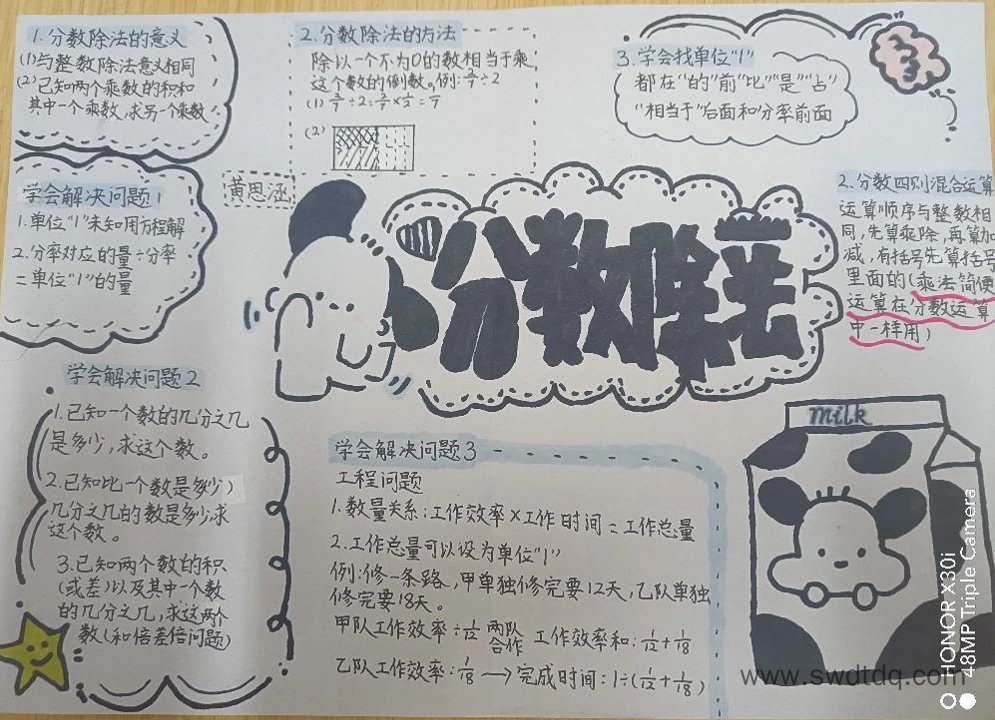 1.分数除法的意义
(1)与整数除法意义相同
(2)已知两个乘数的积和
其中一个乘数,求另一个乘数
2.分数除法的方法
除以一个不为0的数相当于乘
这个数的倒数。例:
(2)
3.学会找单位"1"
都在"的"前"比""是""占"
"相当于"后面和分率前面
学会解决问题1
1.单位"1"未知用方程解
2.分率对应的量÷分率
=单位"1"的量
黄思涵
分数除法
2.分数四则混合运算
运算顺序与整数相
同,先算乘除,再算加
减,有括号先算括号
里面的(乘法简便
运算在分数运算
中一样用)
学会解决问题2
1.已知一个数的几分之几
是多少,求这个数。
2.已知比一个数是多(少)
几分之几的数是多少,求
这个数。
3.已知两个数的积
(或差)以及其中一个数
的几分之几,求这两个
数(和倍差倍问题)
学会解决问题3
工程问题
1.数量关系:工作效率×工作时间=工作总量
2.工作总量可以设为单位"1"
例:修一条路,甲单独修完要12天,乙队单独
修完要18天。
甲队工作效率÷1/12 两队合作 工作效率和:1/12+1/18
乙队工作效率:1/18 → 完成时间:1÷(1/12+1/18)
milk
www.swdtdq.com
HONOR X30i
48MP Triple Camera